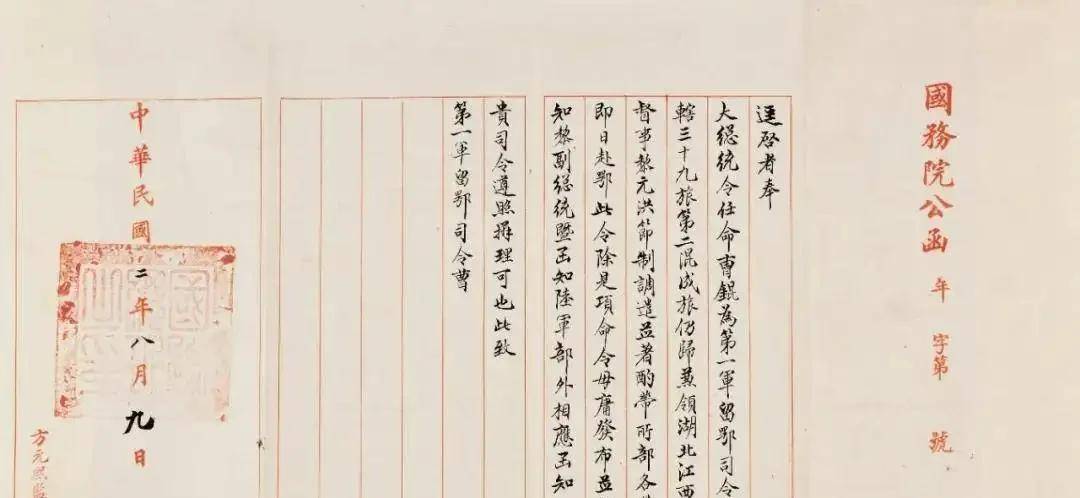 國務院公函 年 字第 號
逕啓者奉
大總統令任命曹錕為第一軍留鄂司令
轄三十九旅第二混成旅仍歸兼領湖北江西
督事黎元洪節制調遣並著酌帶所部各
即日赴鄂此令除是項命令毋庸發布並
知黎副總統暨函知陸軍部外相應函知
貴司令遵照辦理可也此致
第一軍留鄂司令曹
中華民國二年八月九日
方元熙